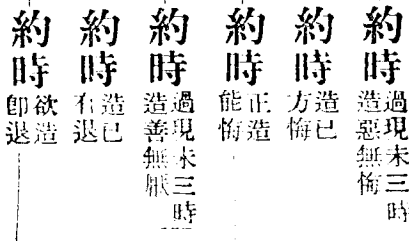 約時過現未三時
造惡無悔
約時造已
方悔
約時正造
能悔
約時過現未三時
造善無厭
約時造已
有退
約時欲造
卽退